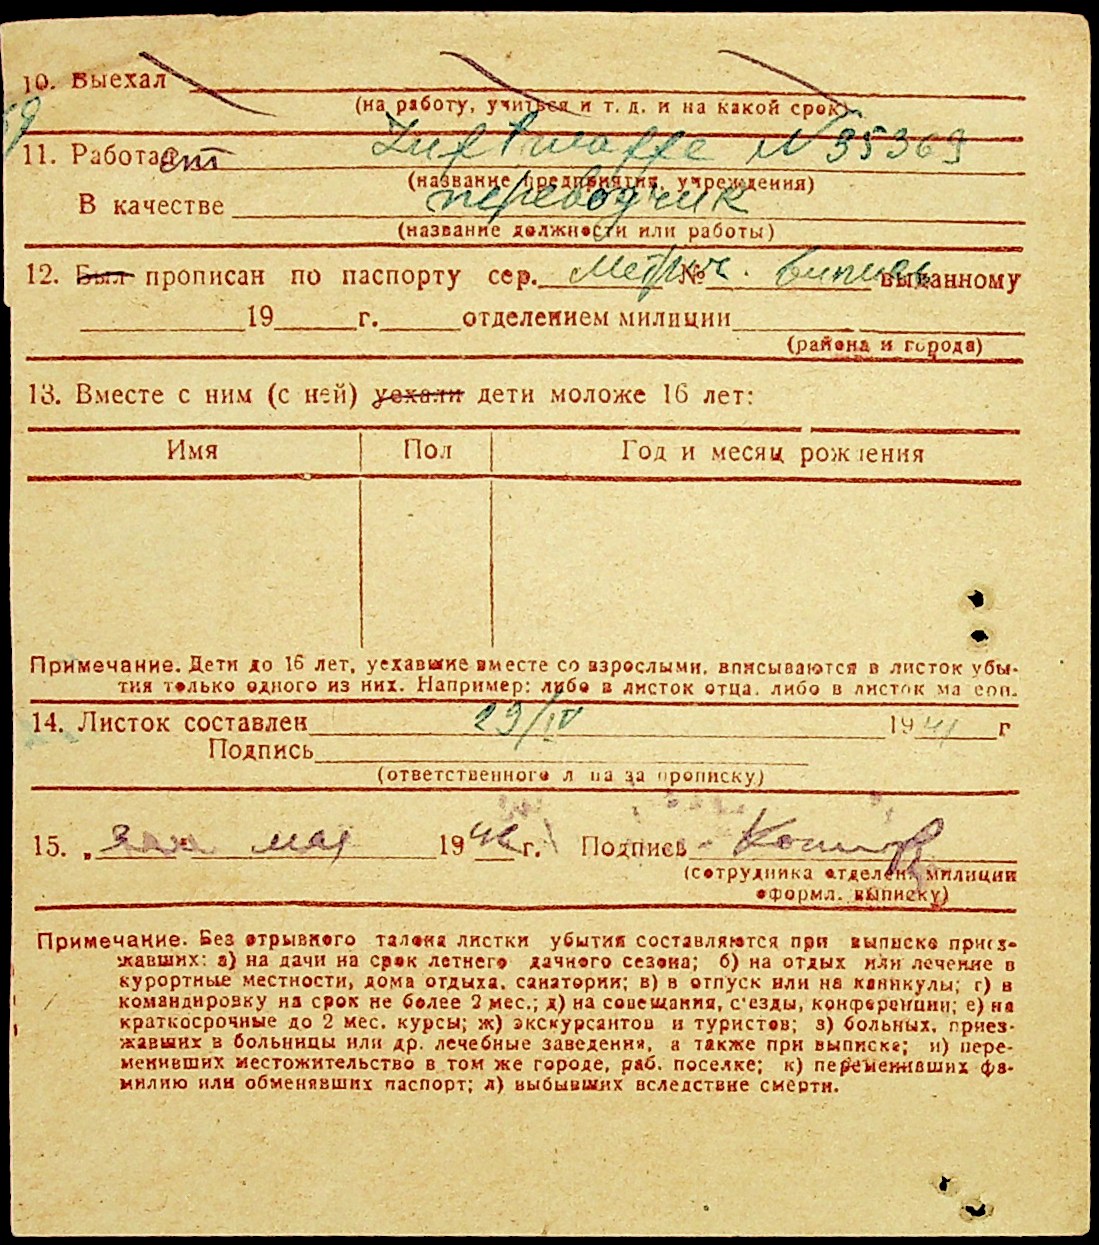 10. Выехал
(на работу, учиться и т. д. и на какой срок)
11. Работает Luftwaffe N 35369
(название предприятия, учреждения)
В качестве переводчик
(название должности или работы)
12. Был прописан по паспорту сер. Метрич. № выпись выданному
19 г. отделением милиции
(района и города)
13. Вместе с ним (с ней) уехали дети моложе 16 лет:
Имя Пол Год и месяц рождения
Примечание. Дети до 16 лет, уехавшие вместе со взрослыми, вписываются в листок убы-
тия только одного из них. Например: либо в листок отца, либо в листок матери.
14. Листок составлен 29/IV 19 г
Подпись
(ответственного лица за прописку)
15. „ мая 1942 г. Подпись
(сотрудника отделен. милиции
оформл. выписку)
Примечание. Без отрывного талона листки убытия составляются при выписке приез-
жавших: а) на дачи на срок летнего дачного сезона; б) на отдых или лечение в
курортные местности, дома отдыха, санатории; в) в отпуск или на каникулы; г) в
командировку на срок не более 2 мес.; д) на совещания, с'езды, конференции; е) на
краткосрочные до 2 мес. курсы; ж) экскурсантов и туристов; з) больных, приез-
жавших в больницы или др. лечебные заведения, а также при выписке; и) пере-
менивших местожительство в том же городе, раб. поселке; к) переменивших фа-
милию или обменявших паспорт; л) выбывших вследствие смерти.